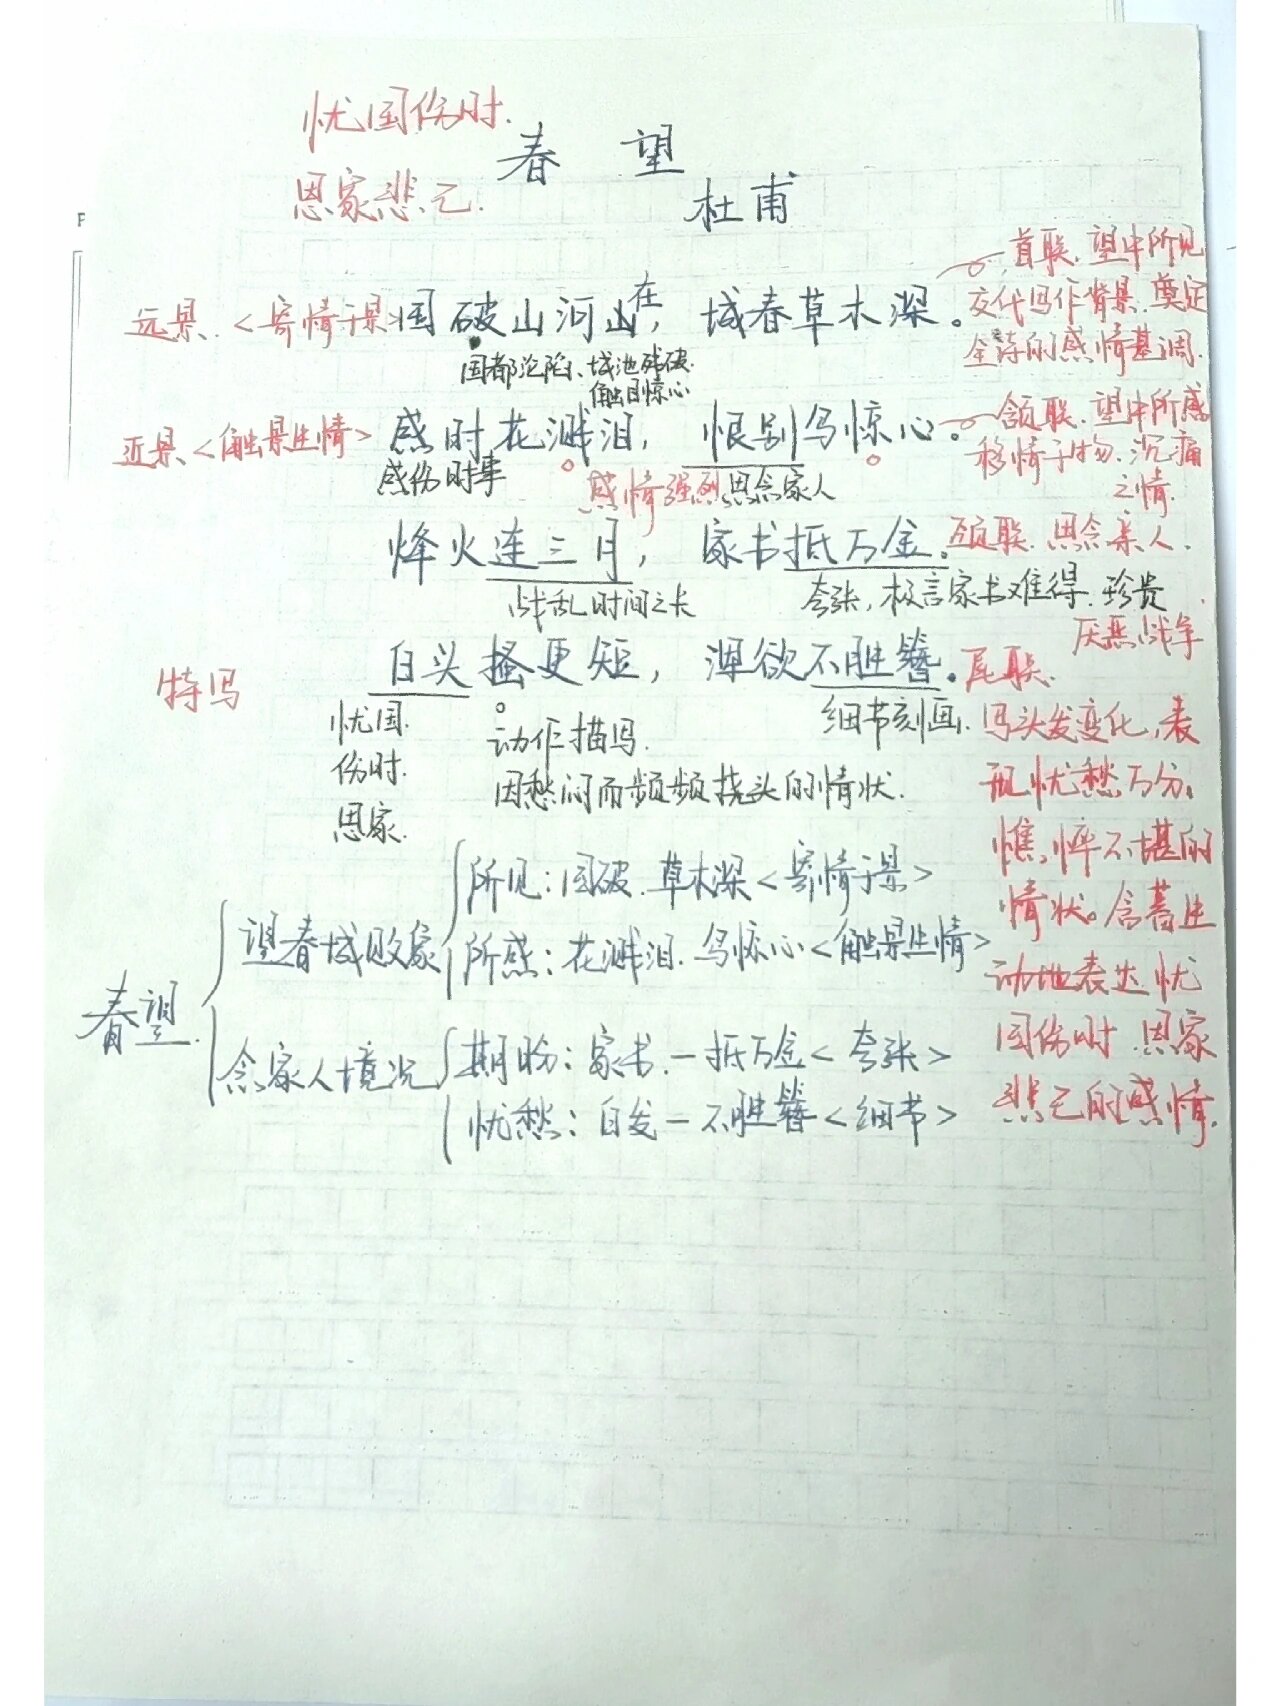 忧国伤时.
春 望
思家悲己.
杜甫
首联.望中所见
远景.<寄情于景>国破山河在,城春草木深。交代写作背景.奠定
全诗的感情基调.
国都沦陷、城池残破.
触目惊心
近景、<触景生情>感时花溅泪,恨别鸟惊心。颔联.望中所感
移情于物.沉痛
之情.
感伤时事
感情强烈.思念家人
烽火连三月,家书抵万金.颈联.思念亲人.
战乱时间之长
夸张,极言家书难得.珍贵
厌恶战争
白头搔更短,浑欲不胜簪.尾联.
特写
忧国.
伤时.
思家.
动作描写.
因愁闷而频频挠头的情状.
细节刻画.
写头发变化,表
现忧愁万分,
憔悴不堪的
情状。含蓄生
动地表达忧
国伤时.思家
悲己的感情.
春望.
望春城败象
所见:国破.草木深<寄情于景>
所感:花溅泪.鸟惊心<触景生情>
念家人境况
期盼:家书-抵万金<夸张>
忧愁:白发-不胜簪<细节>